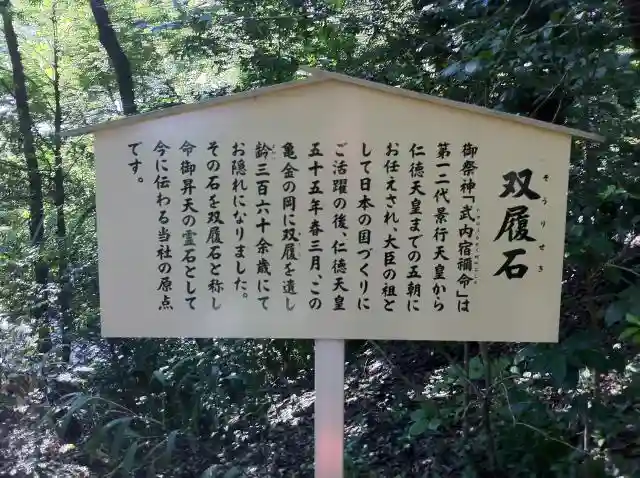 双履石
ぞうりせき
御祭神「武内宿禰命」は
第一二代景行天皇から
仁徳天皇までの五朝に
お任えされ、大臣の祖と
して日本の国づくりに
ご活躍の後、仁徳天皇
五十五年春三月、この
亀金の岡に双履を遺し
齢三百六十余歳にて
お隠れになりました。
その石を双履石と称し
命御昇天の霊石として
今に伝わる当社の原点
です。